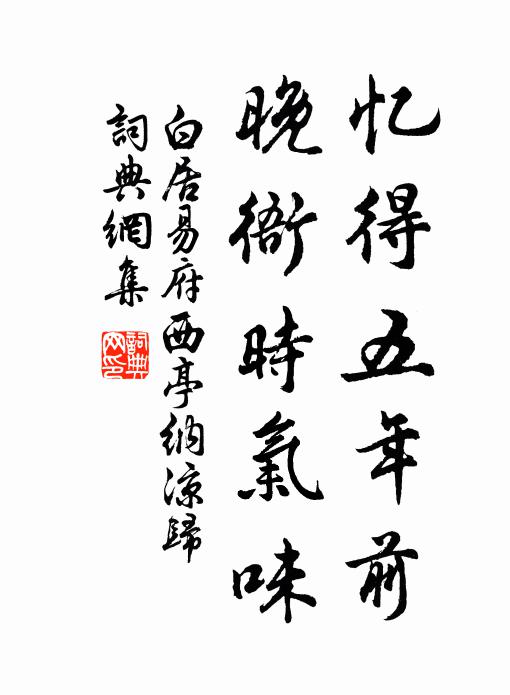 忆得五年前
晚衙時氣味
白居易府西亭納凉歸
詞典網集
詞典網印